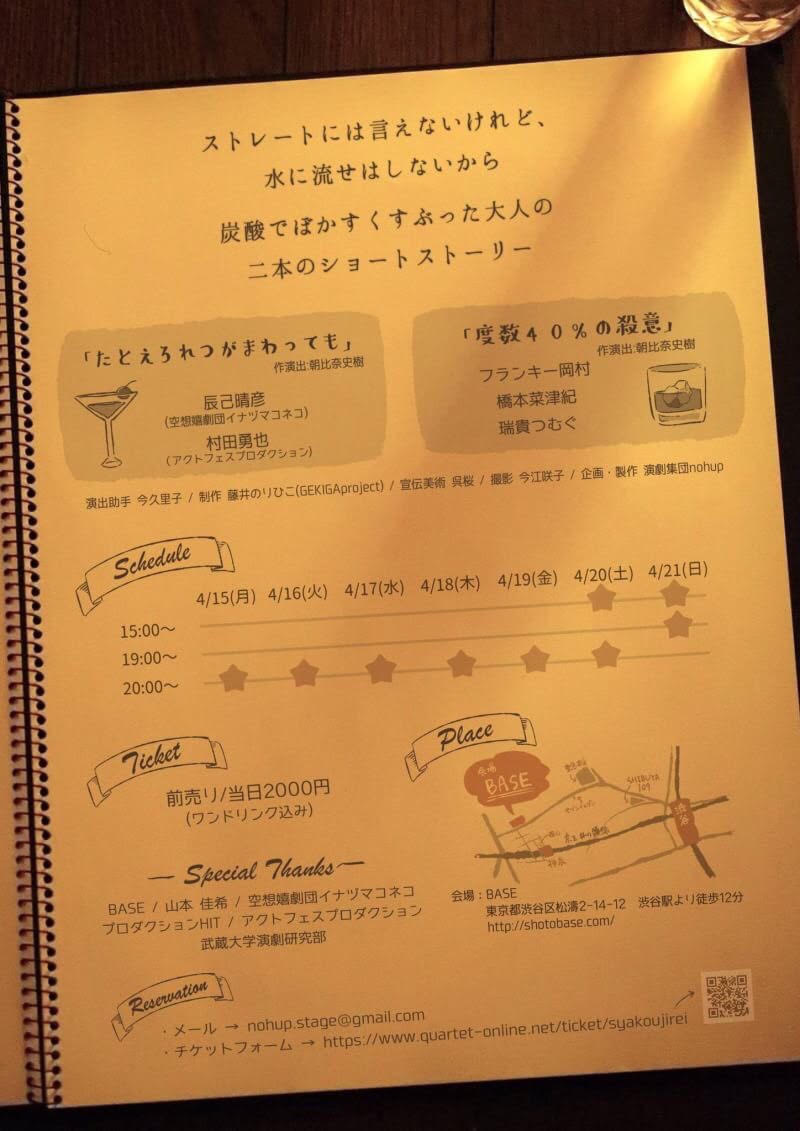 ストレートには言えないけれど、
水に流せはしないから
炭酸でぼかすくすぶった大人の
二本のショートストーリー
「たとえろれつがまわっても」
作演出:朝比奈史樹
辰己晴彦
(空想嬉劇団イナヅマコネコ)
村田勇也
(アクトフェスプロダクション)
「度数40%の殺意」
作演出:朝比奈史樹
フランキー岡村
橋本菜津紀
瑞貴つむぐ
演出助手 今久里子 / 制作 藤井のりひこ(GEKIGAproject) / 宣伝美術 呉桜 / 撮影 今江咲子 / 企画・製作 演劇集団nohup
Schedule
4/15(月) 4/16(火) 4/17(水) 4/18(木) 4/19(金) 4/20(土) 4/21(日)
15:00〜
19:00〜
20:00〜
Ticket
前売り/当日2000円
(ワンドリンク込み)
Special Thanks
BASE / 山本 佳希 / 空想嬉劇団イナヅマコネコ
プロダクションHIT / アクトフェスプロダクション
武蔵大学演劇研究部
Place
会場
BASE
SHIBUYA
109
渋谷
神泉
会場：BASE
東京都渋谷区松濤2-14-12 渋谷駅より徒歩12分
http://shotobase.com/
Reservation
・メール → nohup.stage@gmail.com
・チケットフォーム → https://www.quartet-online.net/ticket/syakoujirei